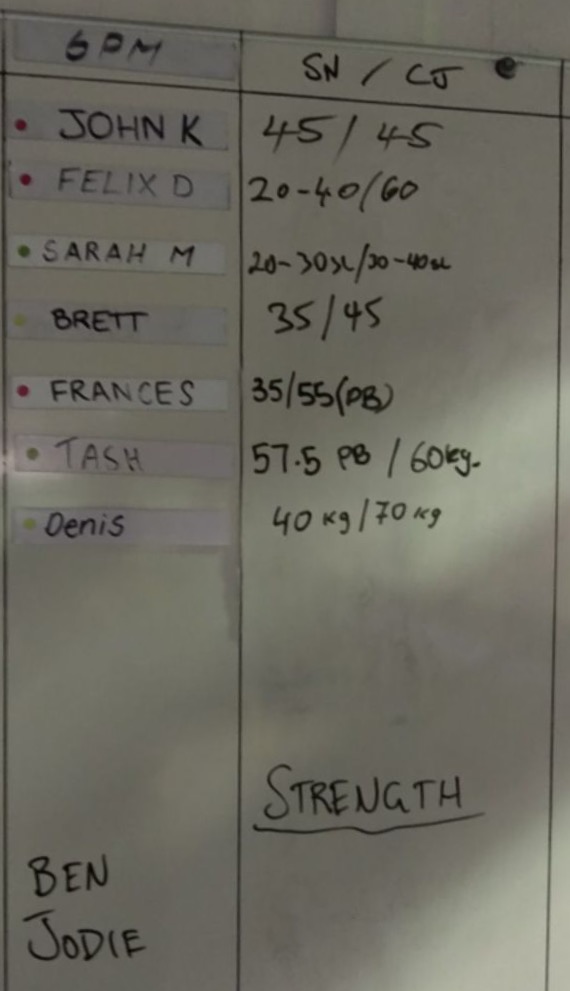 6PM SN / CJ
JOHN K 45 / 45
FELIX D 20-40/60
SARAH M 20-30
BRETT 35/45
FRANCES 35/55 (PB)
TASH 57.5 PB / 60kg.
Denis 40 kg / 70 kg
STRENGTH
BEN
JODIE